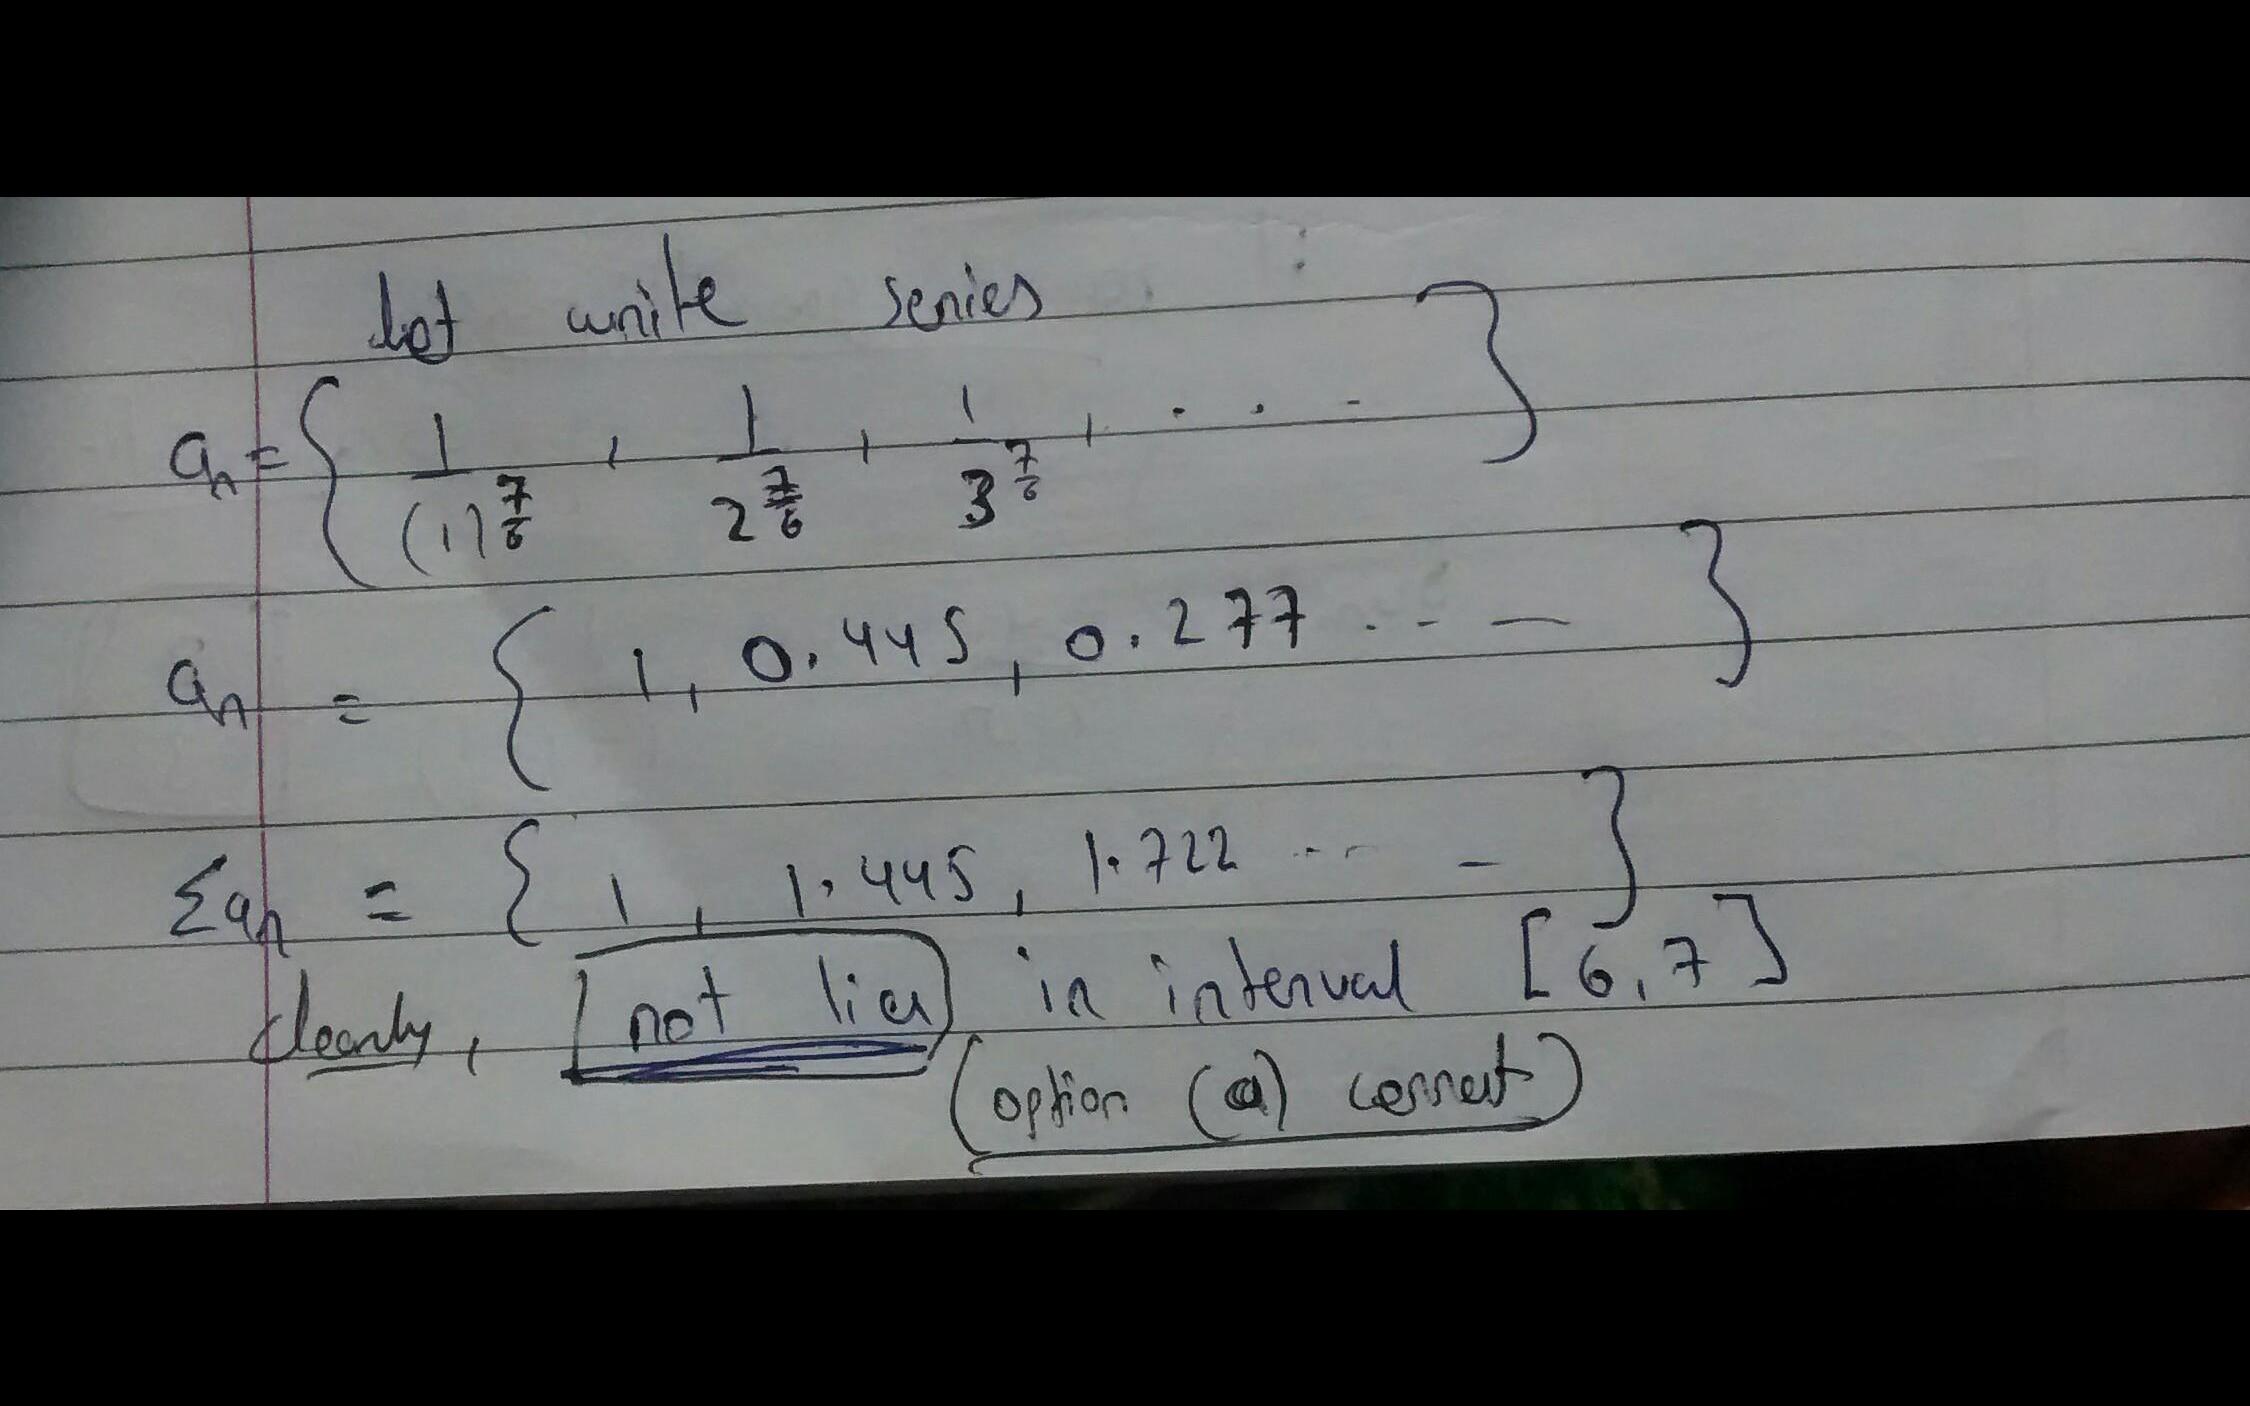 let write series
aₙ = { 1/(1)^(7/6) , 1/2^(7/6) , 1/3^(7/6) , . . - }
aₙ = { 1, 0.445, 0.277 . - - — }
Σaₙ = { 1, 1.445, 1.722 ... - }
clearly, not lies in interval [6,7]
(option (a) correct)